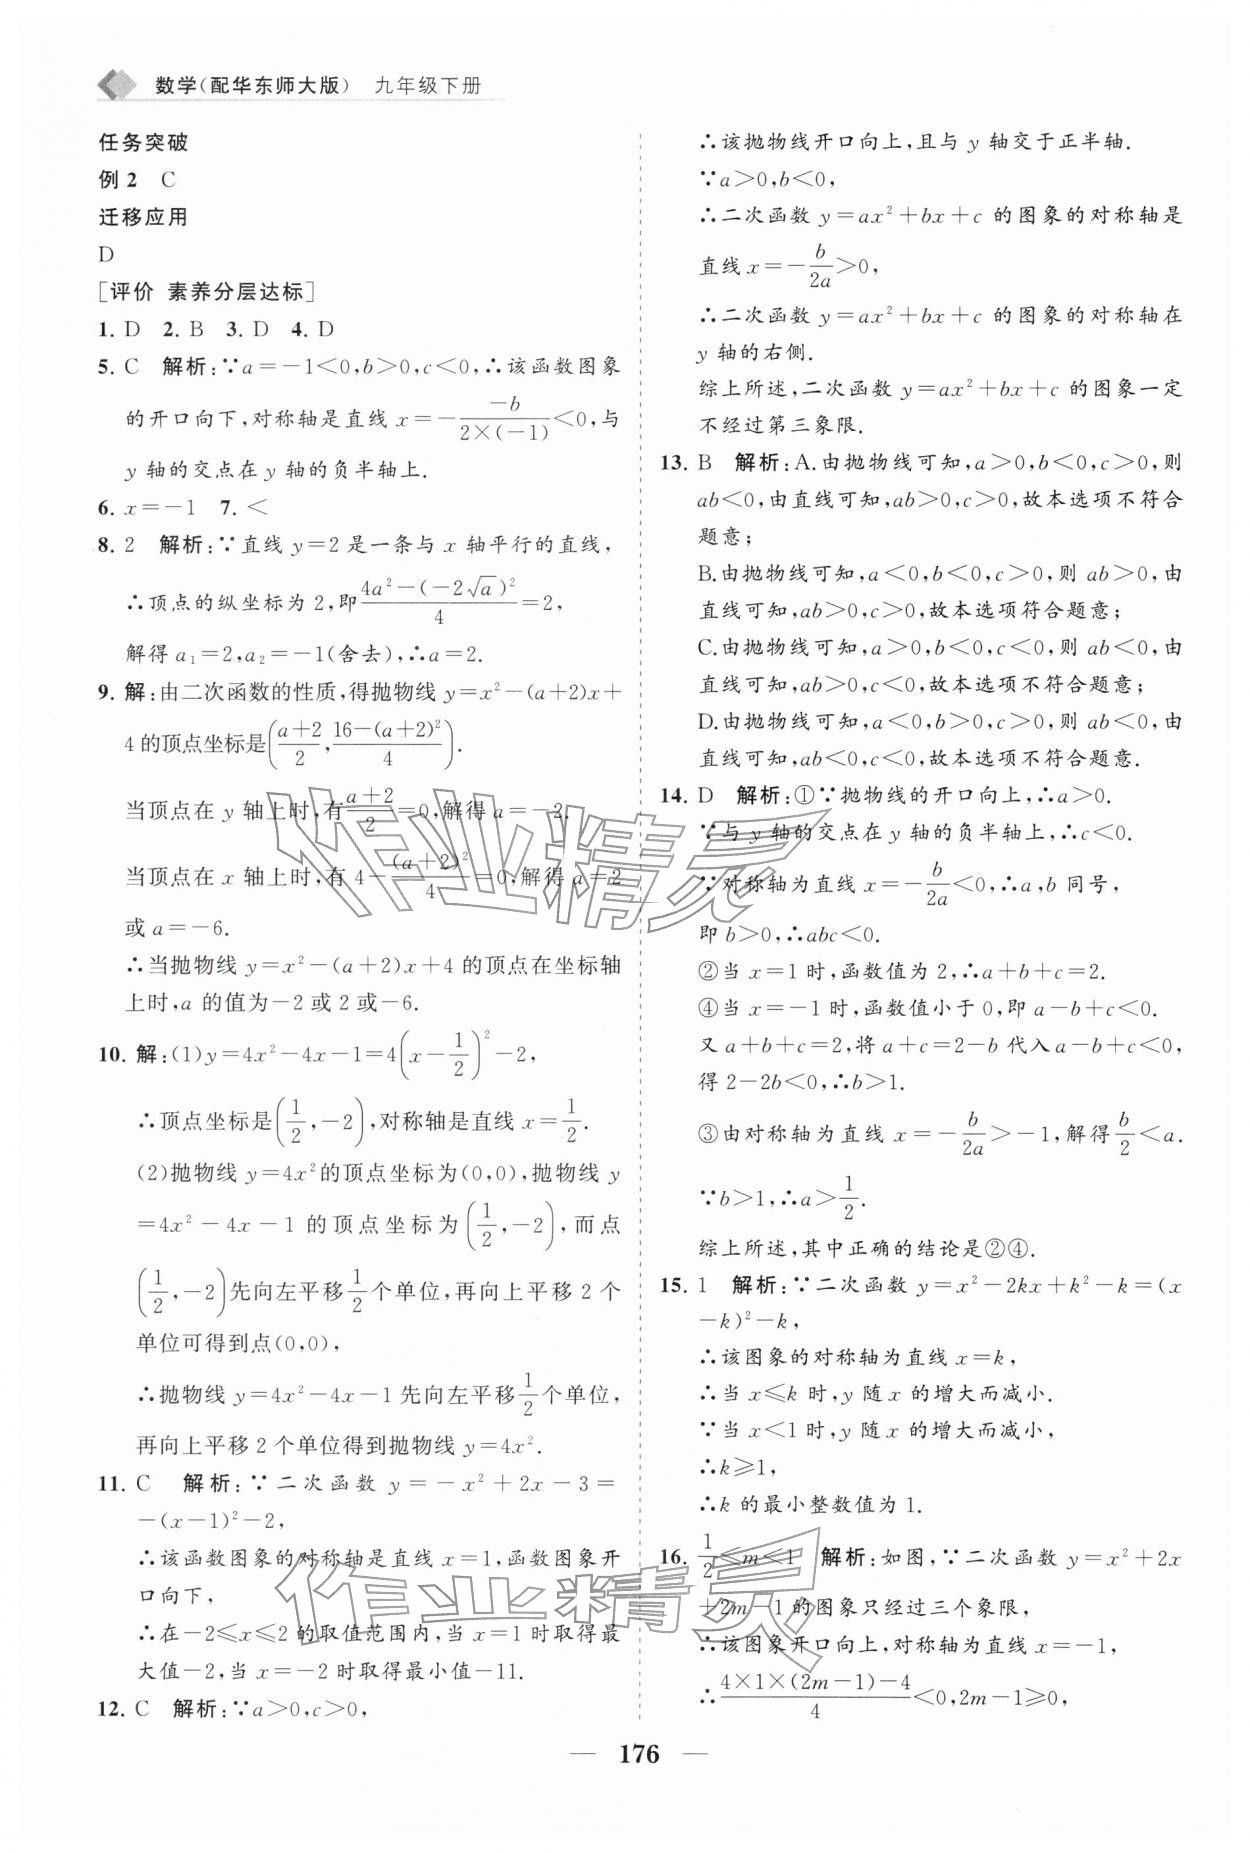 数学(配华东师大版) 九年级下册
任务突破
例2 C
迁移应用
D
[评价 素养分层达标]
1. D 2. B 3. D 4. D
5. C 解析:∵a=-1<0,b>0,c<0,∴该函数图象
的开口向下,对称轴是直线 x=-\frac{-b}{2×(-1)}<0,与
y 轴的交点在 y 轴的负半轴上.
6. x=-1 7. <
8. 2 解析:∵直线 y=2 是一条与 x 轴平行的直线,
∴顶点的纵坐标为 2,即\frac{4a²-(-2√a)²}{4}=2,
解得 a₁=2,a₂=-1(舍去),∴a=2.
9. 解:由二次函数的性质,得抛物线 y=x²-(a+2)x+
4 的顶点坐标是(\frac{a+2}{2},\frac{16-(a+2)²}{4}).
当顶点在 y 轴上时,有\frac{a+2}{2}=0,解得 a=-2.
当顶点在 x 轴上时,有 4-\frac{(a+2)²}{4}=0,解得 a=2
或 a=-6.
∴当抛物线 y=x²-(a+2)x+4 的顶点在坐标轴
上时,a 的值为-2 或 2 或-6.
10. 解:(1)y=4x²-4x-1=4(x-\frac{1}{2})²-2,
∴顶点坐标是(\frac{1}{2},-2),对称轴是直线 x=\frac{1}{2}.
(2)抛物线 y=4x²的顶点坐标为(0,0),抛物线 y
=4x²-4x-1 的顶点坐标为(\frac{1}{2},-2),而点
(\frac{1}{2},-2)先向左平移\frac{1}{2}个单位,再向上平移 2 个
单位可得到点(0,0),
∴抛物线 y=4x²-4x-1 先向左平移\frac{1}{2}个单位,
再向上平移 2 个单位得到抛物线 y=4x².
11. C 解析:∵二次函数 y=-x²+2x-3=
-(x-1)²-2,
∴该函数图象的对称轴是直线 x=1,函数图象开
口向下,
∴在-2≤x≤2 的取值范围内,当 x=1 时取得最
大值-2,当 x=-2 时取得最小值-11.
12. C 解析:∵a>0,c>0,
∴该抛物线开口向上,且与 y 轴交于正半轴.
∵a>0,b<0,
∴二次函数 y=ax²+bx+c 的图象的对称轴是
直线 x=-\frac{b}{2a}>0,
∴二次函数 y=ax²+bx+c 的图象的对称轴在
y 轴的右侧.
综上所述,二次函数 y=ax²+bx+c 的图象一定
不经过第三象限.
13. B 解析:A.由抛物线可知,a>0,b<0,c>0,则
ab<0,由直线可知,ab>0,c>0,故本选项不符合
题意;
B.由抛物线可知,a<0,b<0,c>0,则 ab>0,由
直线可知,ab>0,c>0,故本选项符合题意;
C.由抛物线可知,a>0,b<0,c>0,则 ab<0,由
直线可知,ab>0,c<0,故本选项不符合题意;
D.由抛物线可知,a<0,b>0,c>0,则 ab<0,由
直线可知,ab<0,c<0,故本选项不符合题意.
14. D 解析:①∵抛物线的开口向上,∴a>0.
∵与 y 轴的交点在 y 轴的负半轴上,∴c<0.
∵对称轴为直线 x=-\frac{b}{2a}<0,∴a,b 同号,
即 b>0,∴abc<0.
②当 x=1 时,函数值为 2,∴a+b+c=2.
④当 x=-1 时,函数值小于 0,即 a-b+c<0.
又 a+b+c=2,将 a+c=2-b 代入 a-b+c<0,
得 2-2b<0,∴b>1.
③由对称轴为直线 x=-\frac{b}{2a}>-1,解得\frac{b}{2}<a.
∵b>1,∴a>\frac{1}{2}.
综上所述,其中正确的结论是②④.
15. 1 解析:∵二次函数 y=x²-2kx+k²-k=(x
-k)²-k,
∴该图象的对称轴为直线 x=k,
∴当 x≤k 时,y 随 x 的增大而减小.
∵当 x<1 时,y 随 x 的增大而减小,
∴k≥1,
∴k 的最小整数值为 1.
16. \frac{1}{2}≤m<1 解析:如图,∵二次函数 y=x²+2x
+2m-1 的图象只经过三个象限,
∴该图象开口向上,对称轴为直线 x=-1,
∴\frac{4×1×(2m-1)-4}{4}<0,2m-1≥0,
作业精灵
作业精灵
— 176 —